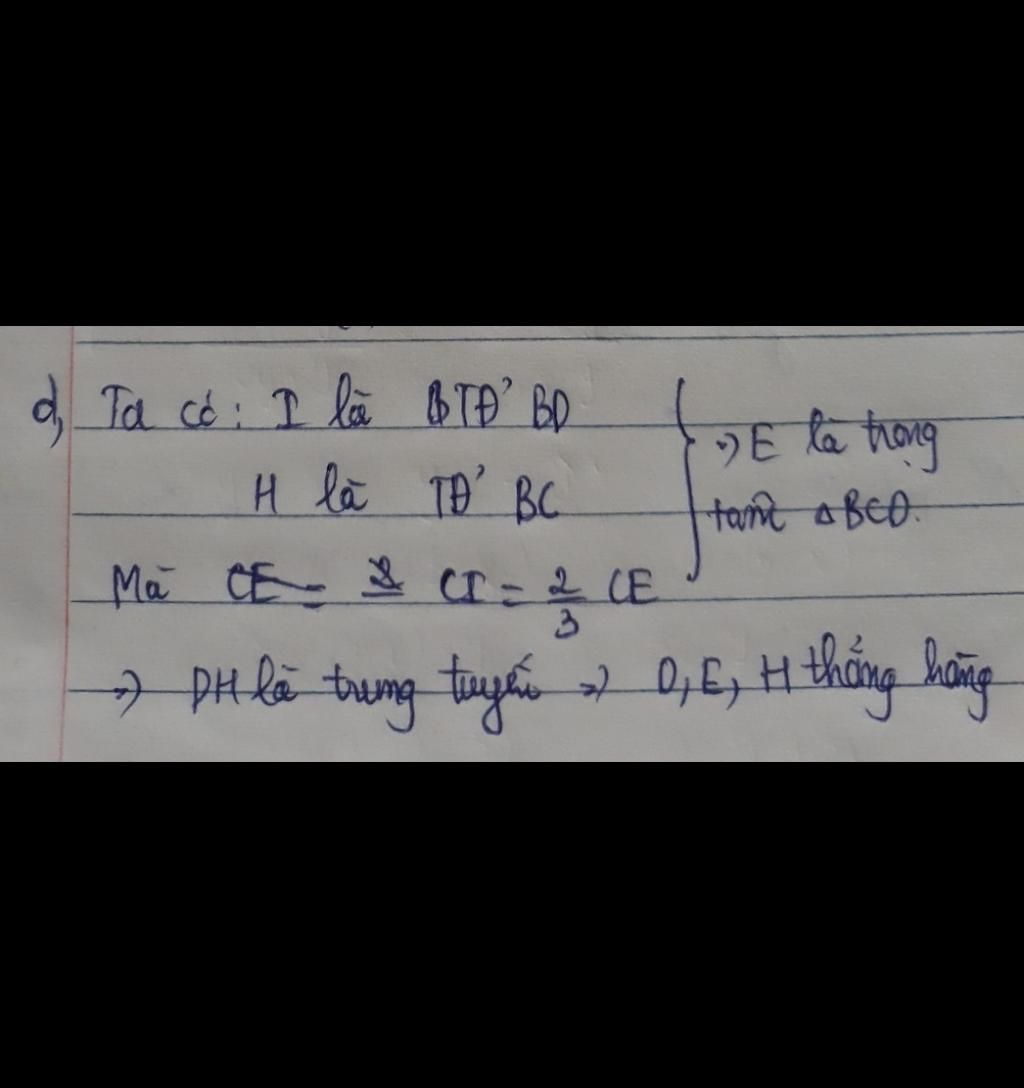 d, Ta có: I là TĐ' BD
H là TĐ' BC
Mà CI = 2/3 CE
=> E là trọng
tâm ΔBCD.
=> DH là trung tuyến => D, E, H thẳng hàng